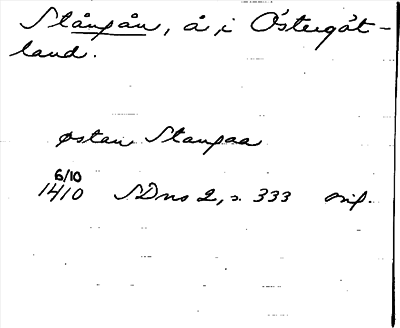 Stångån, å i Östergöt-
land.
østan Stangaa
6/10
1410 SDns 2, s. 333 orig.